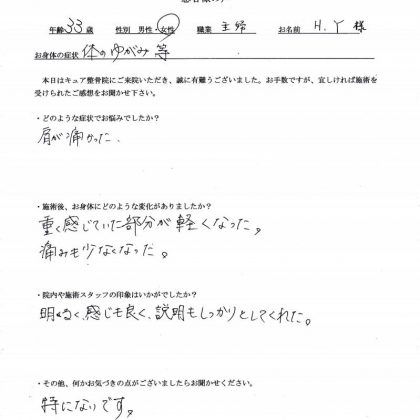 年齢 33 歳 性別 男性・女性 職業 主婦 お名前 H.Y 様
お身体の症状 体のゆがみ 等
本日はキュア整骨院にご来院いただき、誠に有難うございました。お手数ですが、宜しければ施術を
受けられたご感想をお聞かせ下さい。
・どのような症状でお悩みでしたか?
肩が痛かった.
・施術後、お身体にどのような変化がありましたか?
重く感じていた部分が軽くなった。
痛みも少なくなった。
・院内や施術スタッフの印象はいかがでしたか?
明るく、感じも良く、説明もしっかりとしてくれた。
・その他、何かお気づきの点がございましたらお聞かせください。
特にないです。